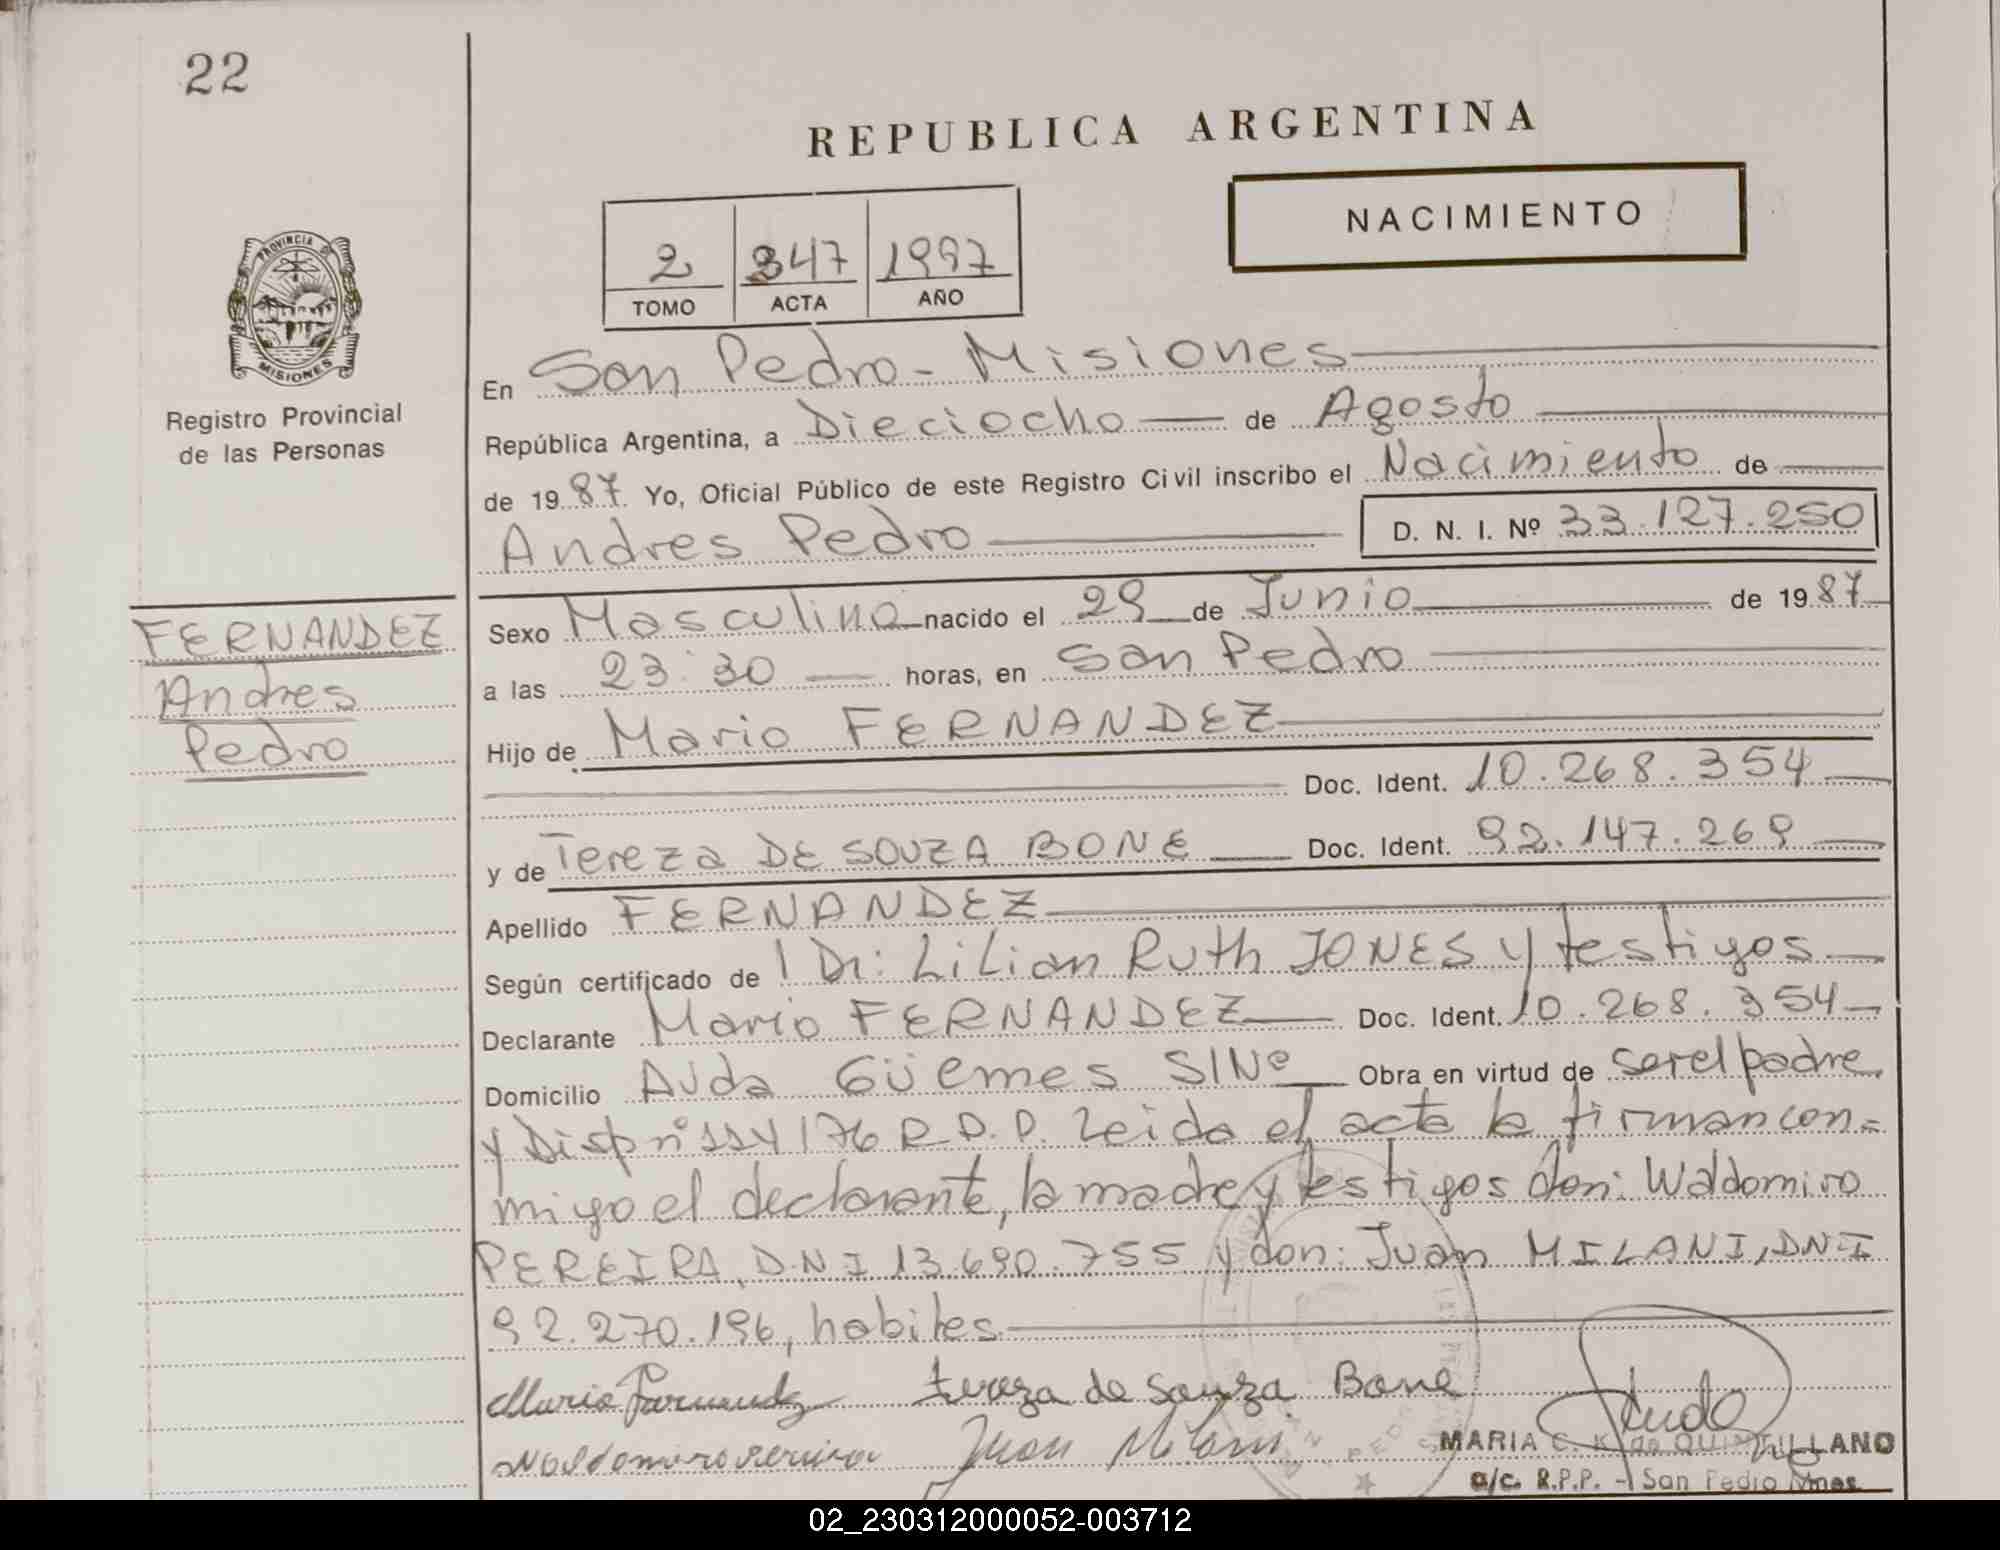 22
REPUBLICA ARGENTINA
NACIMIENTO
2 347 1997
TOMO ACTA AÑO
PROVINCIA DE
MISIONES
Registro Provincial
de las Personas
En San Pedro - Misiones
República Argentina, a Dieciocho de Agosto
de 1987. Yo, Oficial Público de este Registro Civil inscribo el Nacimiento de
Andres Pedro D. N. I. Nº 33.127.250
FERNANDEZ
Andres
Pedro
Sexo Masculino nacido el 29 de Junio de 1987
a las 23:30 horas, en San Pedro
Hijo de Mario FERNANDEZ
Doc. Ident. 10.268.354
y de Tereza DE SOUZA BONE Doc. Ident. 92.147.269
Apellido FERNANDEZ
Según certificado de Dr: Lilian Ruth JONES y testigos
Declarante Mario FERNANDEZ Doc. Ident. 10.268.354
Domicilio Avda Güemes S/Nº Obra en virtud de ser el padre
y Disp nº 114/76 R.D.P. Leida el acta la firman con=
migo el declarante, la madre y testigos don: Waldomiro
PEREIRA, D.N.I 13.690.755 y don: Juan MILANI, DNI
92.270.196, habiles
Mario Fernandez tereza de Souza Bone
Waldomiro Pereira Juan Milani
MARIA C. K. de QUINTILLANO
a/c. R.P.P. - San Pedro Mnes.
02_230312000052-003712